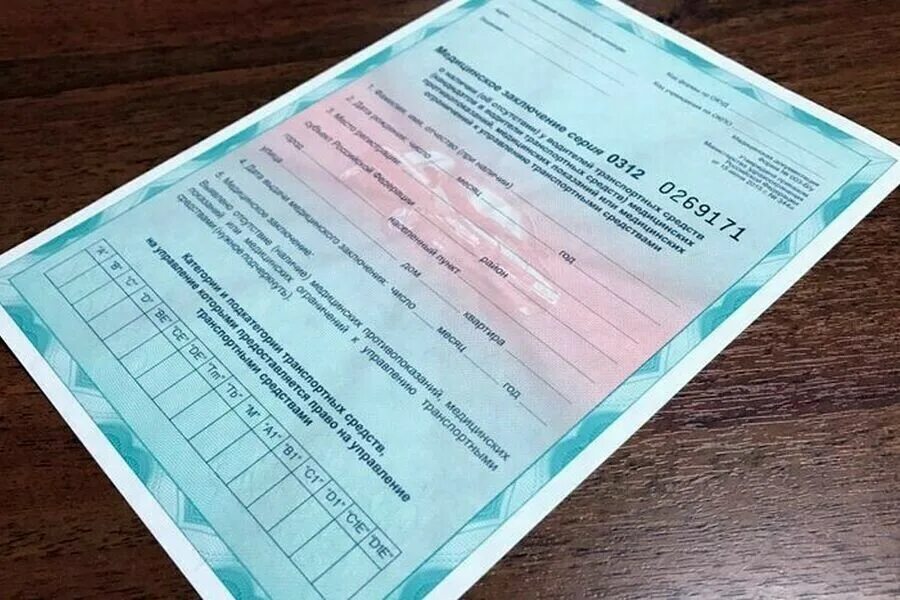 Код формы по ОКУД
Код учреждения по ОКПО
Медицинская документация
форма № 003-В/у
Утверждена приказом
Министерства здравоохранения
Российской Федерации
от 15 июня 2015 г. № 344н
Медицинское заключение серия 0312 0269171
о наличии (об отсутствии) у водителей транспортных средств
(кандидатов в водители транспортных средств) медицинских
противопоказаний, медицинских показаний или медицинских
ограничений к управлению транспортными средствами
1. Фамилия, имя, отчество (при наличии)
2. Дата рождения: число месяц год
3. Место регистрации:
субъект Российской Федерации район
город населенный пункт
улица дом квартира
4. Дата выдачи медицинского заключения: число месяц год
5. Медицинское заключение:
Выявлено отсутствие (наличие) медицинских противопоказаний, медицинских
показаний или медицинских ограничений к управлению транспортными
средствами (нужное подчеркнуть).
Категории и подкатегории транспортных средств,
на управление которыми предоставляется право на управление
транспортными средствами
"A" "B" "C" "D" "BE" "CE" "DE" "Tm" "Tb" "M" "A1" "B1" "C1" "D1" "C1E" "D1E"